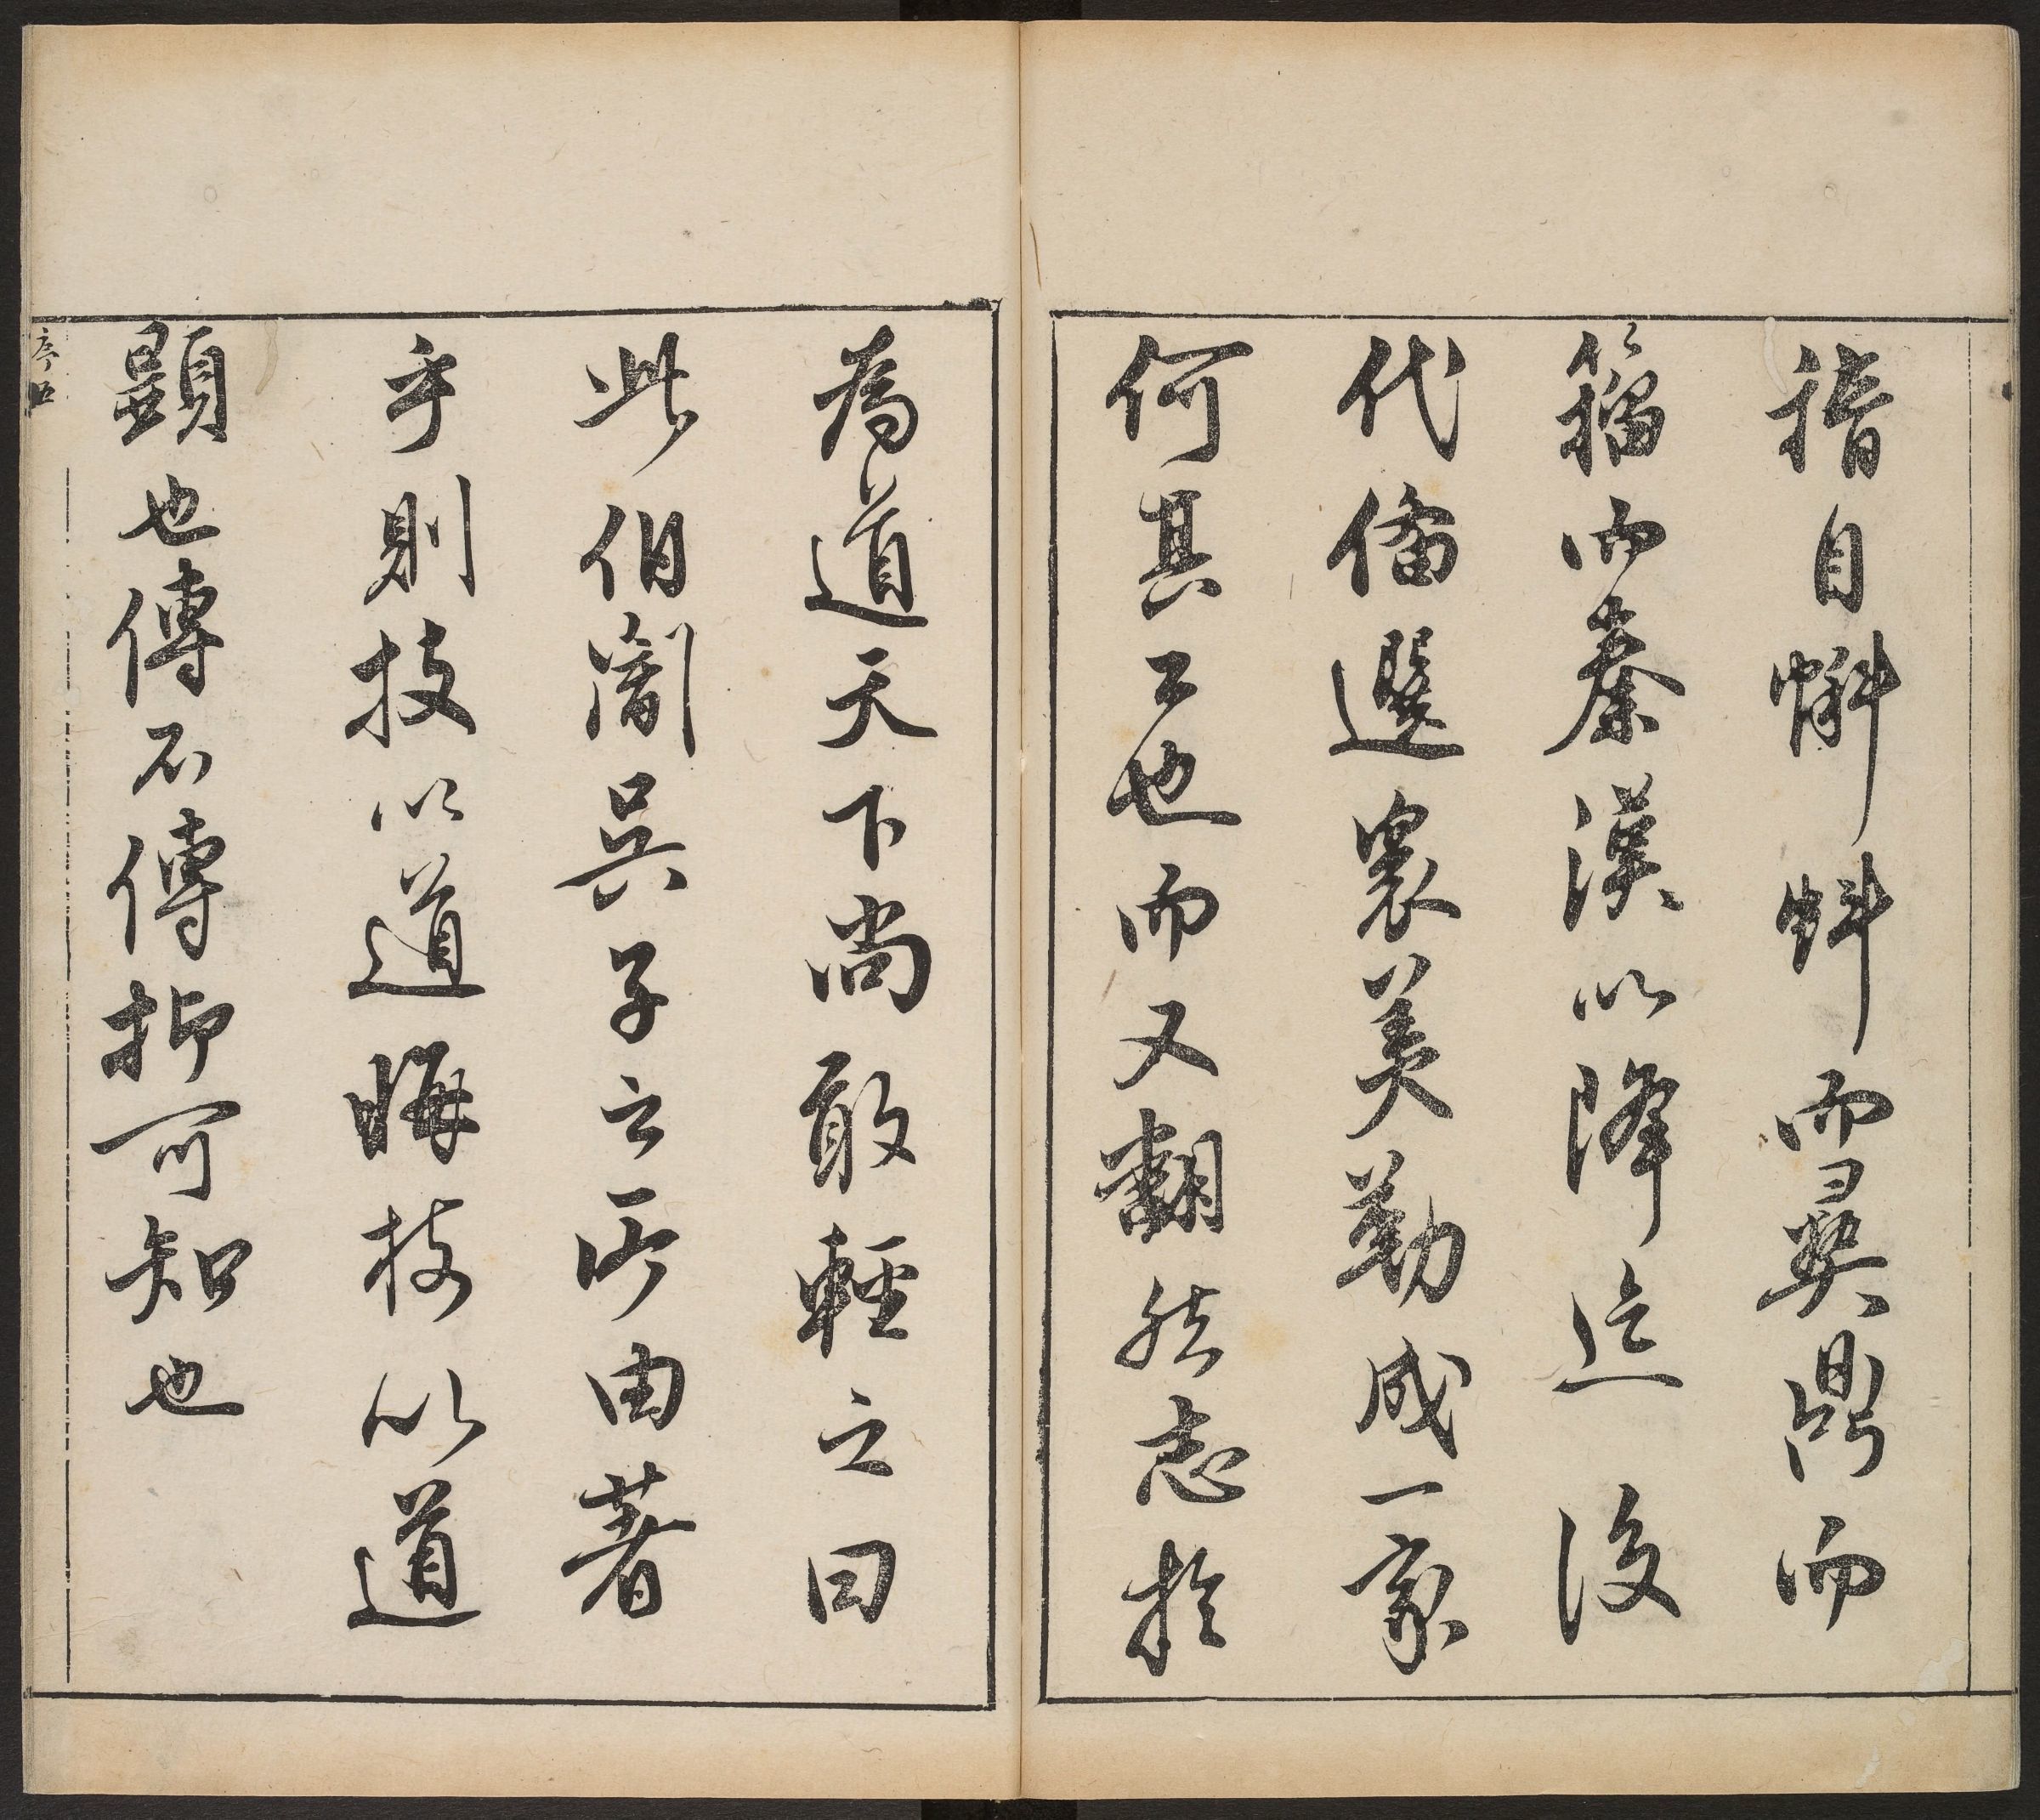 稽自蝌蚪而彝鼎而
籀而秦漢以降迄後
代備選裒美勒成一家
何其工也而又翻然志於
為道天下尚敢輕之曰
此伯闇吳子之所由著
乎則技以道晦技以道
顕也傳不傳抑可知也
序四